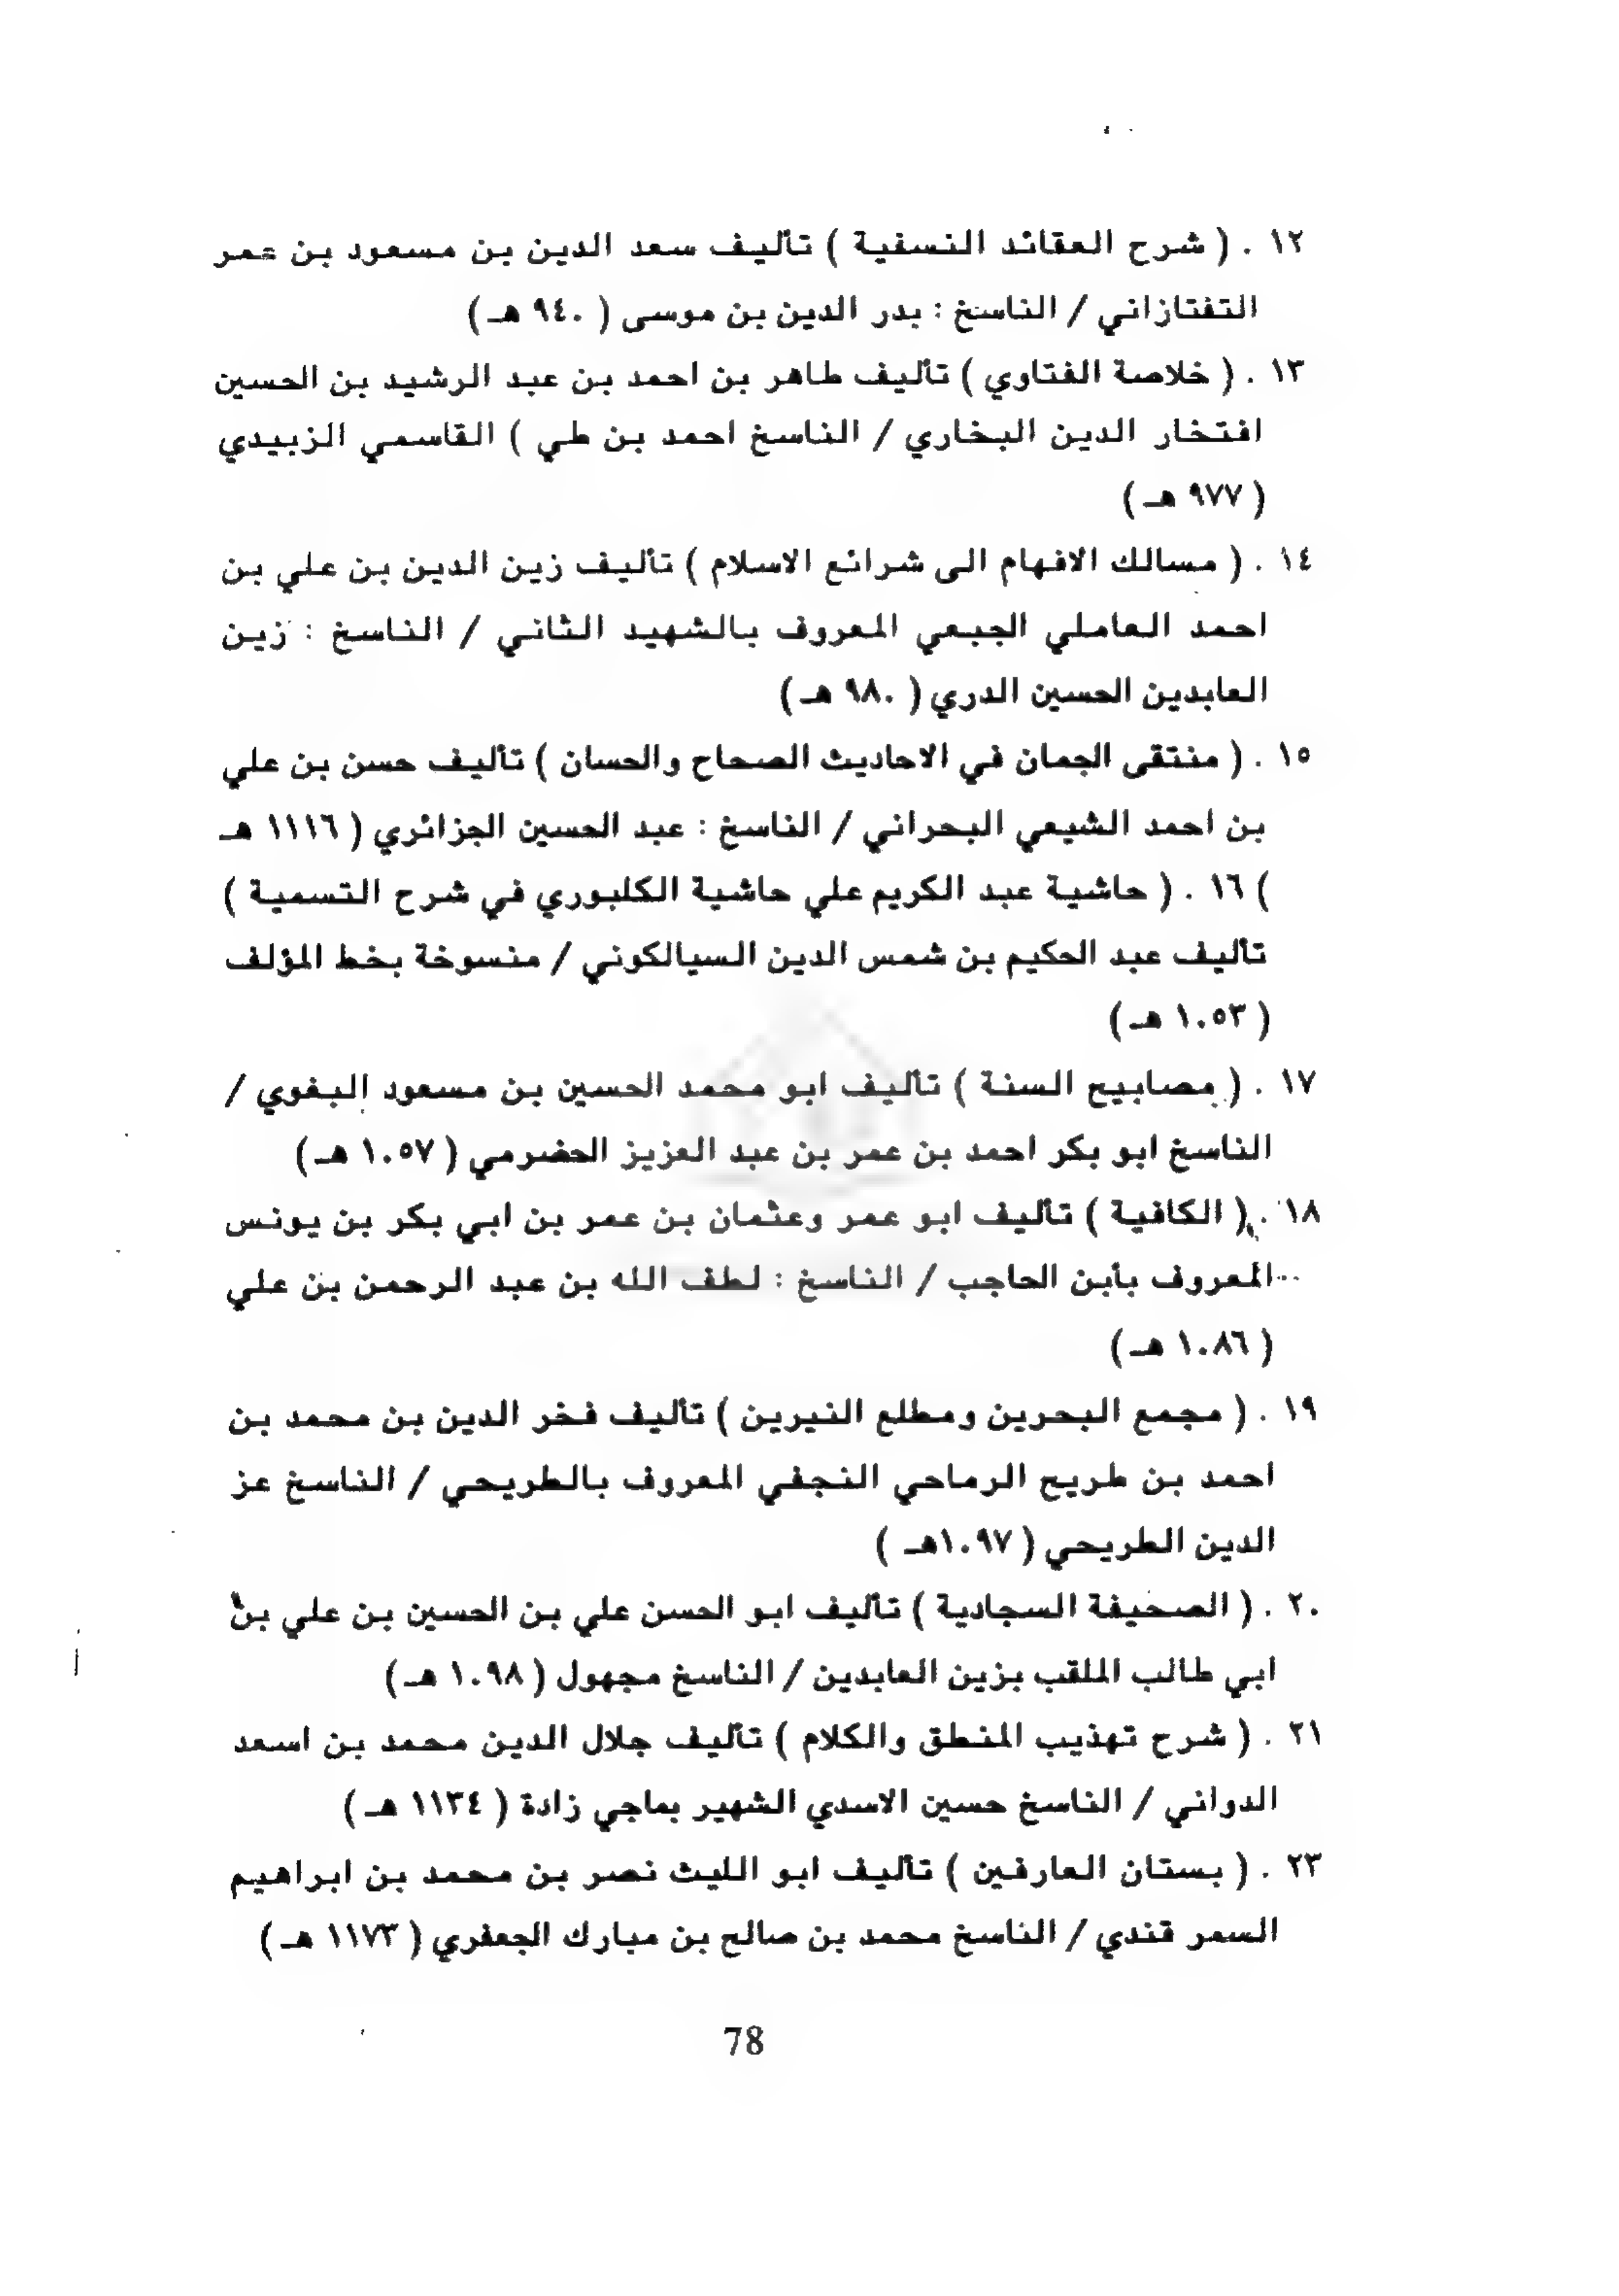 ١٢ . ( شرح العقائد النسفية ) تأليف سعد الدين بن مسعود بن عمر
التفتازاني / الناسخ : بدر الدين بن موسى ( ٩٤٠ هـ )
١٣ . ( خلاصة الفتاوي ) تأليف طاهر بن احمد بن عبد الرشيد بن الحسين
افتخار الدين البخاري / الناسخ احمد بن طي ) القاسمي الزبيدي
( ٩٧٧ هـ )
١٤ . ( مسالك الافهام الى شرائع الاسلام ) تأليف زين الدين بن علي بن
احمد العاملي الجبعي المعروف بالشهيد الثاني / الناسخ : زين
العابدين الحسين الدري ( ٩٨٠ هـ )
١٥ . ( منتقى الجمان في الاحاديث الصحاح والحسان ) تأليف حسن بن علي
بن احمد الشيعي البحراني / الناسخ : عبد الحسين الجزائري ( ١١١٦ هـ
) ١٦ . ( حاشية عبد الكريم علي حاشية الكلبوري في شرح التسمية )
تأليف عبد الحكيم بن شمس الدين السيالكوني / منسوخة بخط المؤلف
( ١٠٥٣ هـ )
١٧ . ( مصابيح السنة ) تأليف ابو محمد الحسين بن مسعود البغوي /
الناسخ ابو بكر احمد بن عمر بن عبد العزيز الحضرمي ( ١٠٥٧ هـ )
١٨ . ( الكافية ) تأليف ابو عمر وعثمان بن عمر بن ابي بكر بن يونس
المعروف بأبن الحاجب / الناسخ : لطف الله بن عبد الرحمن بن علي
( ١٠٨٦ هـ )
١٩ . ( مجمع البحرين ومطلع النيرين ) تأليف فخر الدين بن محمد بن
احمد بن طريح الرماحي النجفي المعروف بالطريحي / الناسخ عز
الدين الطريحي ( ١٠٩٧هـ )
٢٠ . ( الصحيفة السجادية ) تأليف ابو الحسن علي بن الحسين بن علي بن
ابي طالب الملقب بزين العابدين / الناسخ مجهول ( ١٠٩٨ هـ )
٢١ . ( شرح تهذيب المنطق والكلام ) تأليف جلال الدين محمد بن اسعد
الدواني / الناسخ حسين الاسدي الشهير بماجي زادة ( ١١٣٤ هـ )
٢٣ . ( بستان العارفين ) تأليف ابو الليث نصر بن محمد بن ابراهيم
السمر قندي / الناسخ محمد بن صالح بن مبارك الجعفري ( ١١٧٣ هـ )
78